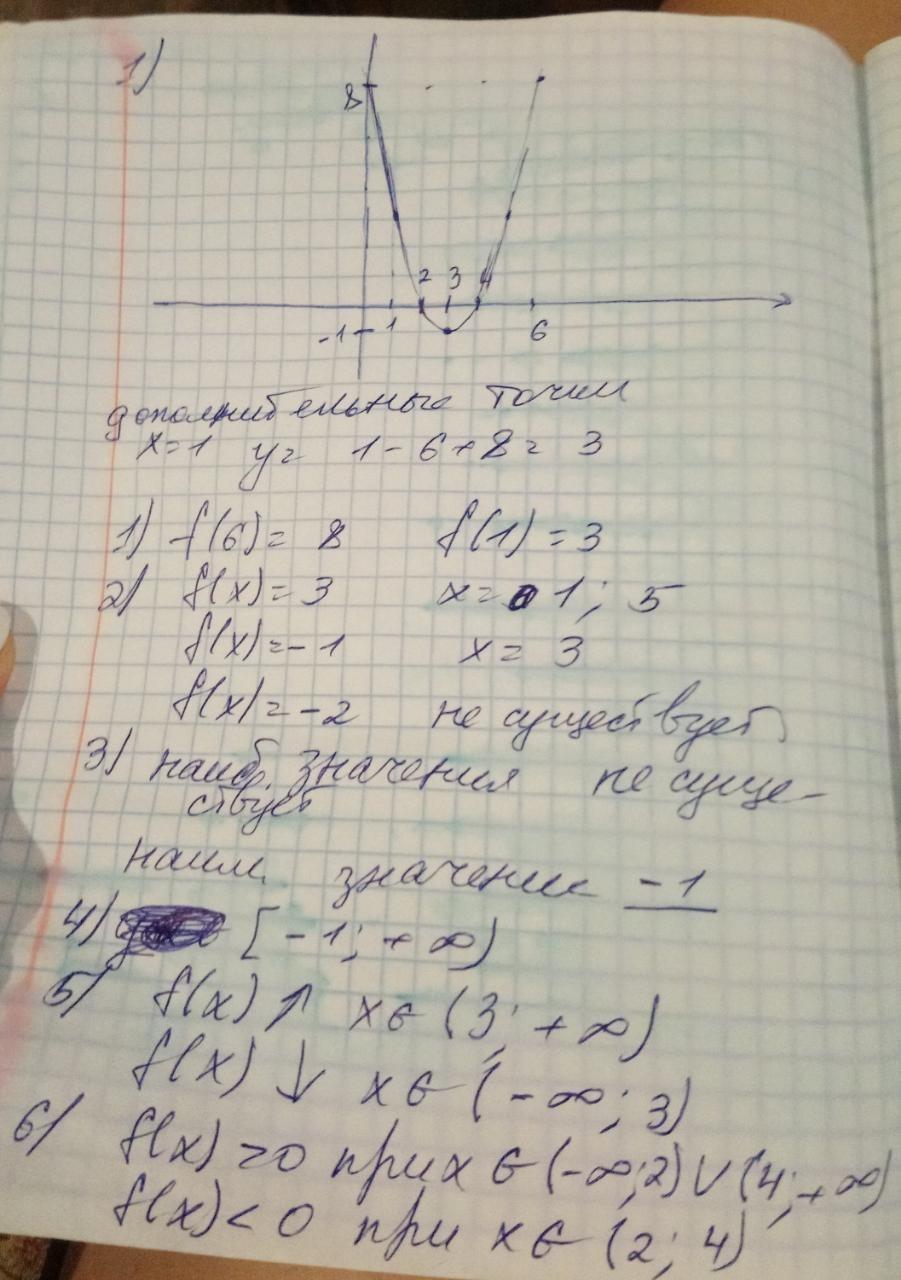 1)
8
2 3 4
-1 1 6
дополнительные точки
x=1 y= 1-6+8= 3
1) f(6)= 8 f(1)=3
2) f(x)=3 x= 1; 5
f(x)=-1 x= 3
f(x)=-2 не существует
3) наиб. значения не суще-
ствует
наим. значение -1
4) [-1; +∞)
5) f(x) ↑ x∈(3; +∞)
f(x) ↓ x∈(-∞; 3)
6) f(x)>0 при x∈(-∞;2)∪(4;+∞)
f(x)<0 при x∈(2; 4)